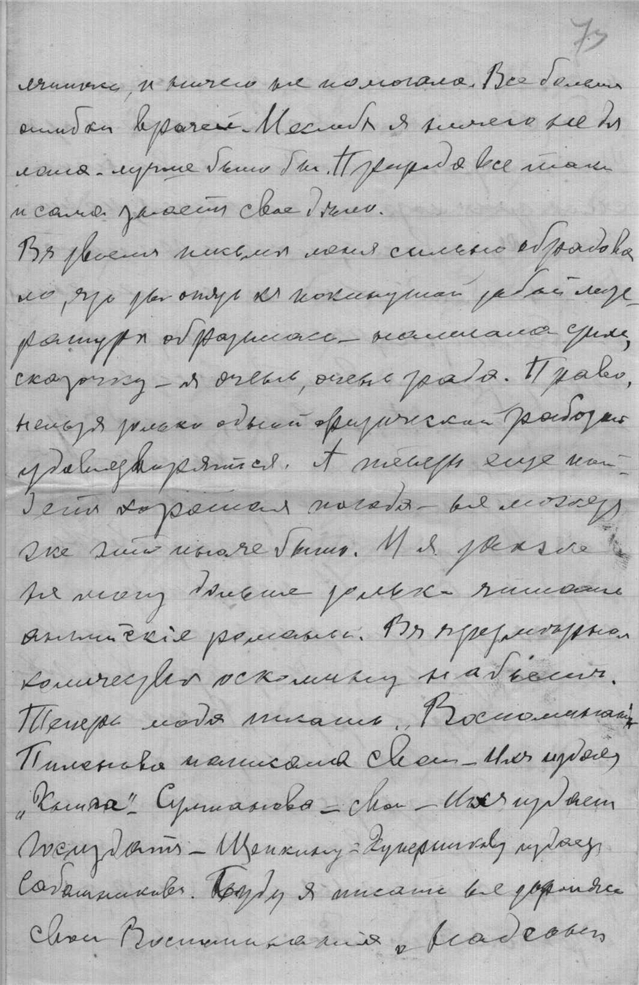 73
и ничего не помогало. Все более
ошибки врачей. Я ничего не де
лала – лучше было бы. Природа все таки
и сама знает свое дело.
В твоем письме меня сильно обрадова
ло, что ты опять к покинутой тобой лите-
ратуре обратилась – написала
сказочку – я очень, очень рада. Право,
нельзя только одной физической работой
удовлетворяться. А теперь еще пой-
дет хорошая погода – не может
же это иначе быть. И я также
не могу больше только читать
английскiе романы. В чрезмерном
количестве оскомину набьешь.
Теперь мода писать „Воспоминанiя
написала свои – Их издает
„Книга" – Султанова – свои – Их издает
Госиздат – Щепкину-Куперник издает
Сабашников. Буду я писать не торопясь
свои Воспоминания о Надсоне